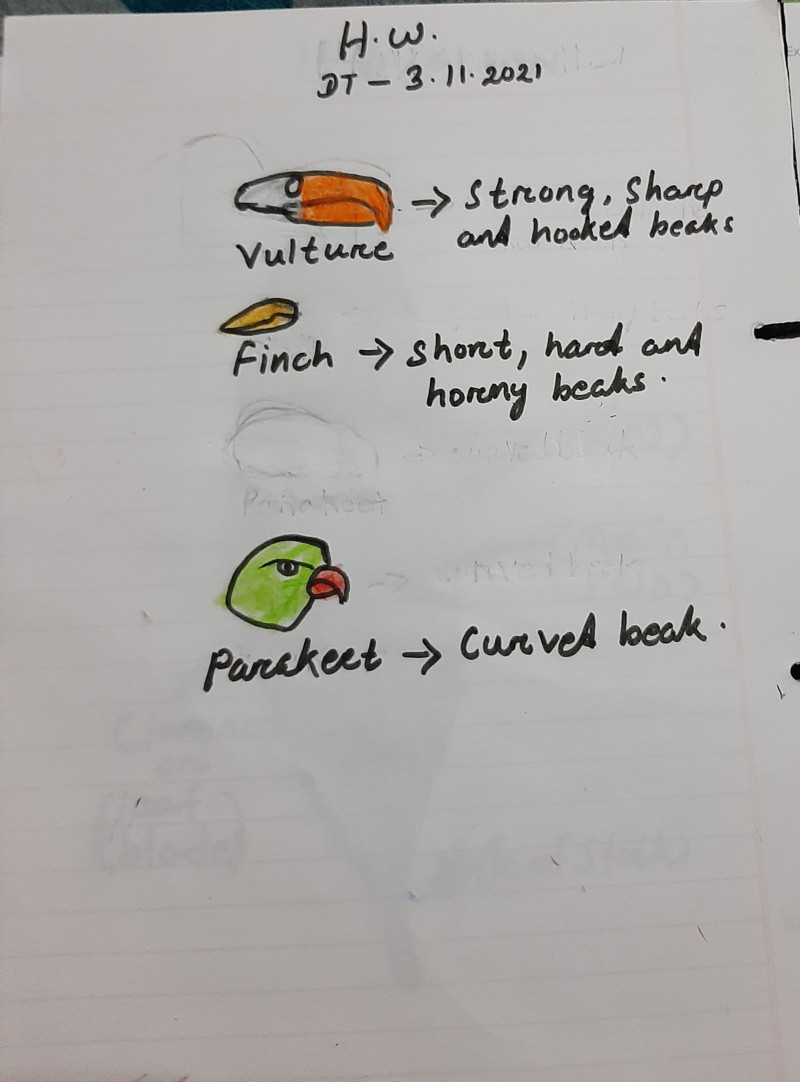 H.W.
DT – 3.11.2021
Vulture → Strong, sharp
and hooked beaks
Finch → short, hard and
horny beaks.
Parakeet
Parakeet → Curved beak.